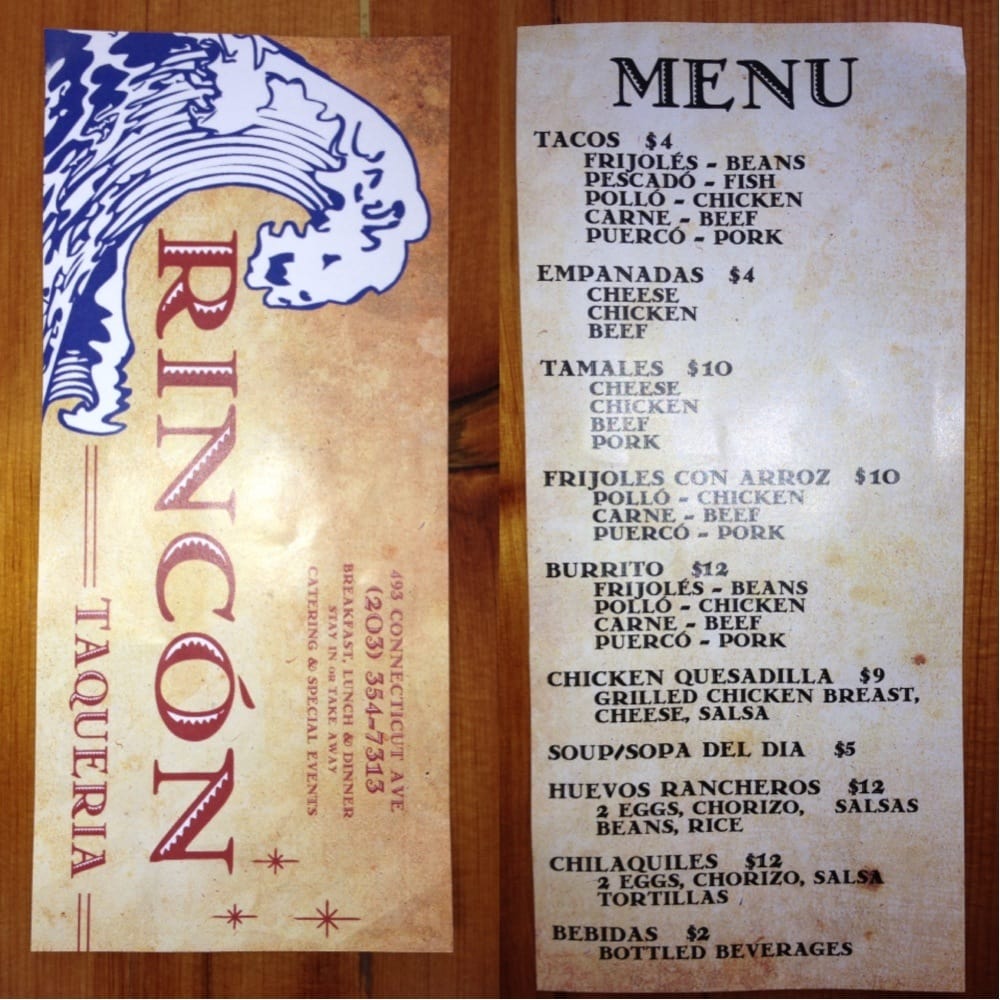 RINCÓN
TAQUERIA
493 CONNECTICUT AVE
(203) 354-7313
BREAKFAST, LUNCH & DINNER
STAY IN OR TAKE AWAY
CATERING & SPECIAL EVENTS
MENU
TACOS $4
FRIJOLÉS - BEANS
PESCADÓ - FISH
POLLÓ - CHICKEN
CARNE - BEEF
PUERCÓ - PORK
EMPANADAS $4
CHEESE
CHICKEN
BEEF
TAMALES $10
CHEESE
CHICKEN
BEEF
PORK
FRIJOLES CON ARROZ $10
POLLÓ - CHICKEN
CARNE - BEEF
PUERCÓ - PORK
BURRITO $12
FRIJOLÉS - BEANS
POLLÓ - CHICKEN
CARNE - BEEF
PUERCÓ - PORK
CHICKEN QUESADILLA $9
GRILLED CHICKEN BREAST,
CHEESE, SALSA
SOUP/SOPA DEL DIA $5
HUEVOS RANCHEROS $12
2 EGGS, CHORIZO, SALSAS
BEANS, RICE
CHILAQUILES $12
2 EGGS, CHORIZO, SALSA
TORTILLAS
BEBIDAS $2
BOTTLED BEVERAGES